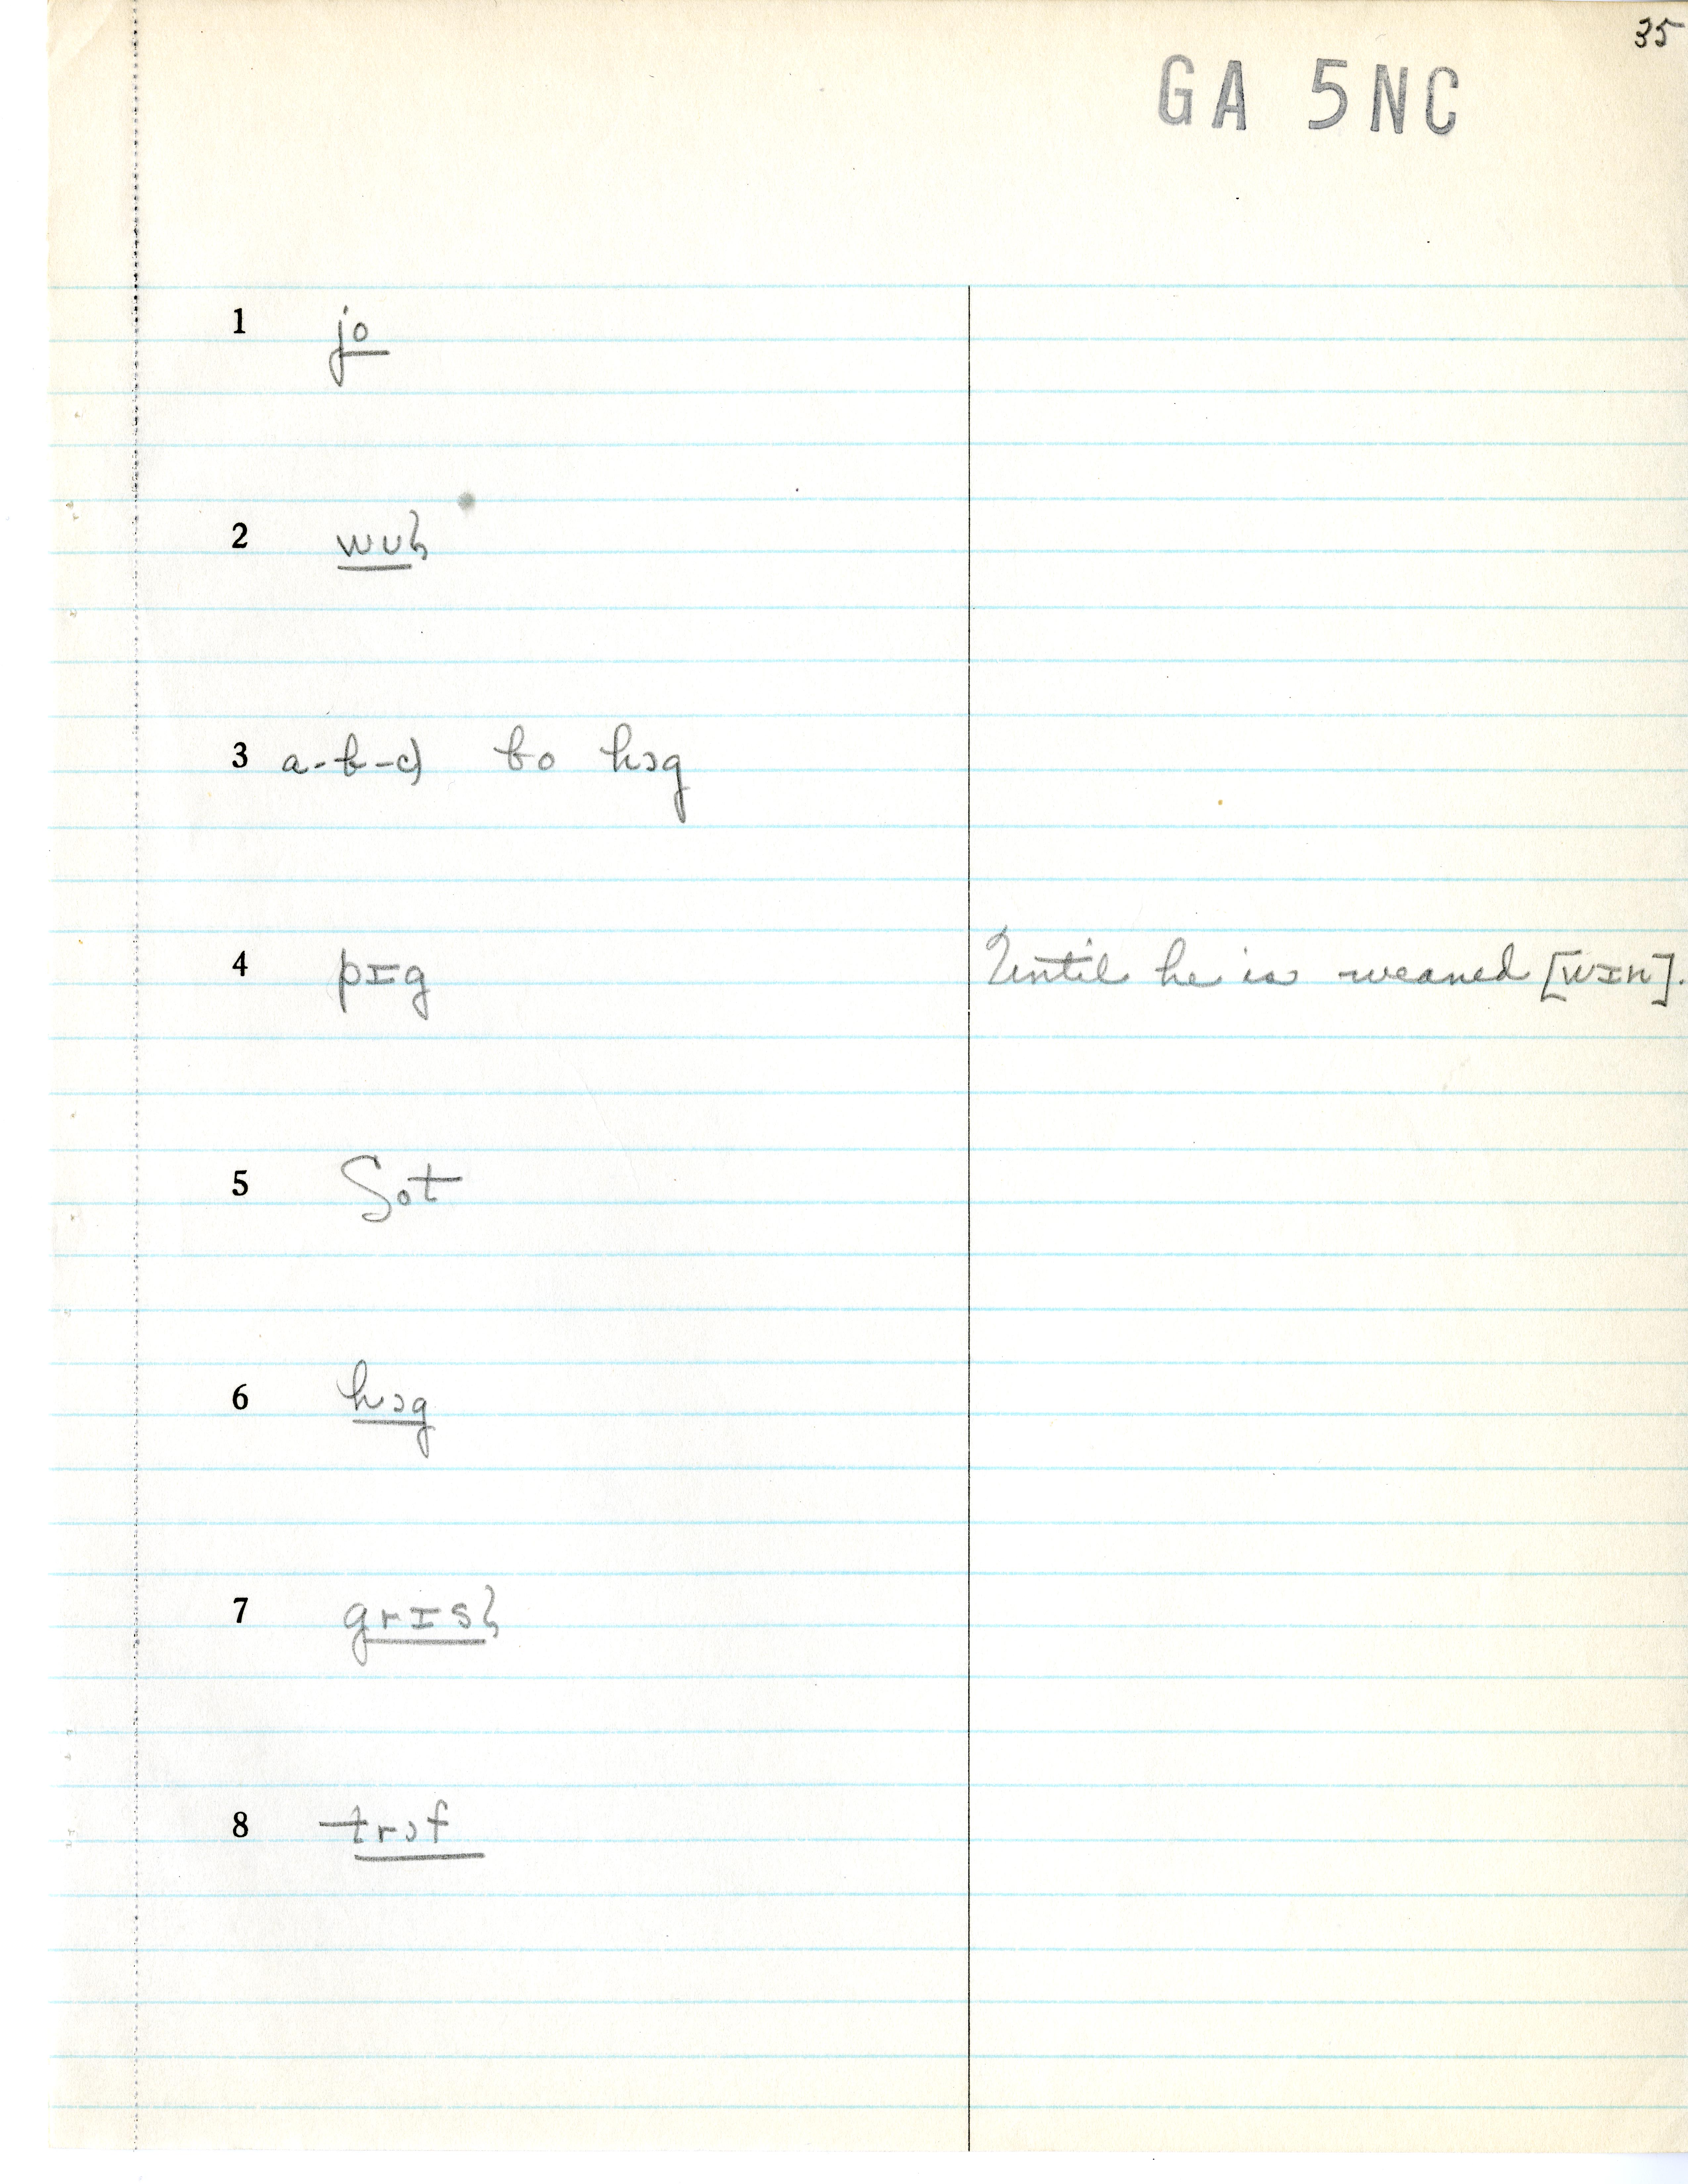 35
GA 5NC
1 jo
2 wuḷ
3 a-b-c) bo hɔg
4 pɪg Until he is weaned [wɪn].
5 ʃot
6 hɔg
7 grɪsḷ
8 trɔf